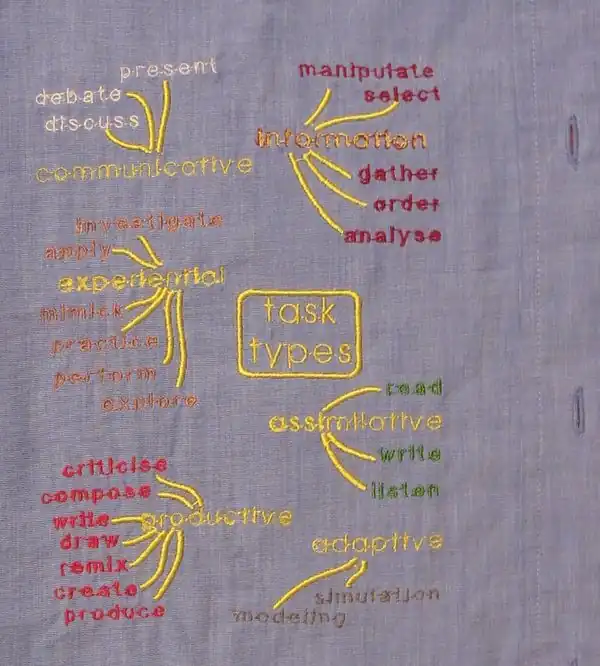 present
debate
discuss
communicative
manipulate
select
information
gather
order
analyse
investigate
apply
experiential
mimick
practice
perform
explore
task
types
read
assimilative
write
listen
criticise
compose
write
productive
draw
remix
create
produce
adaptive
simulation
modeling